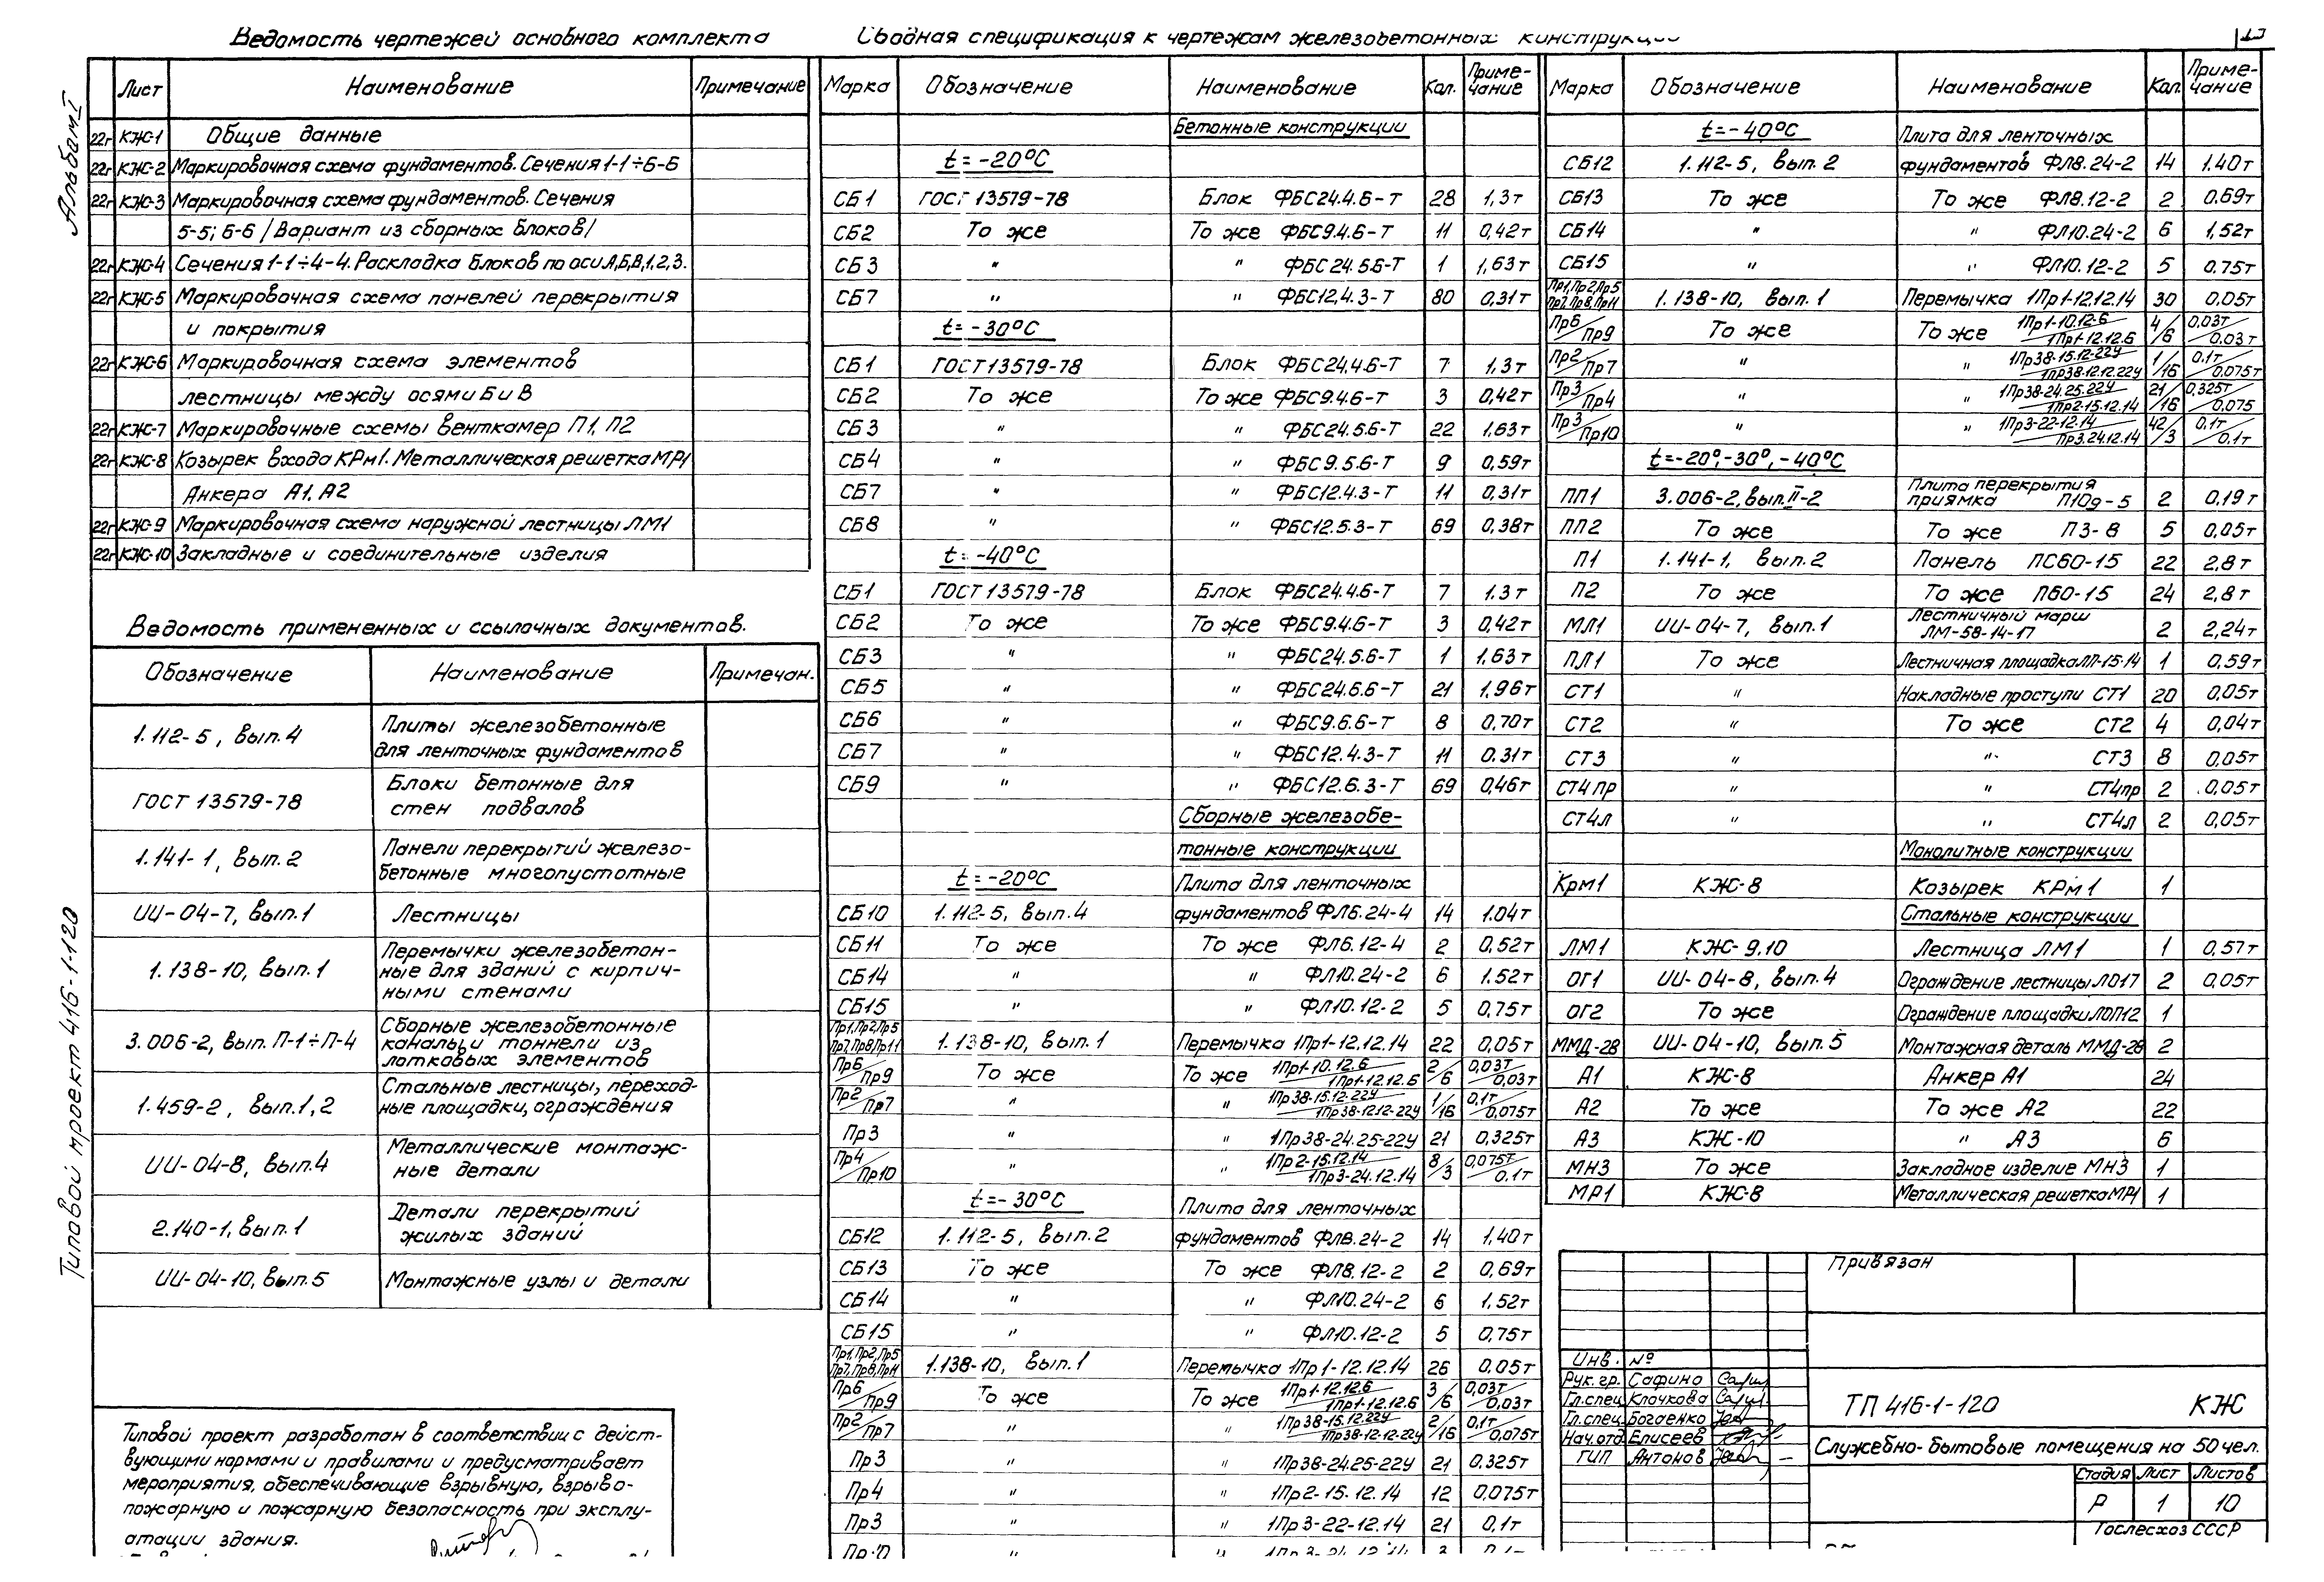 Ведомость чертежей основного комплекта
Альбом I
Типовой проект 416-1-120
Лист Наименование Примечание
22г КЖ-1 Общие данные
22г КЖ-2 Маркировочная схема фундаментов. Сечения 1-1÷6-6
22г КЖ-3 Маркировочная схема фундаментов. Сечения
5-5; 6-6 /Вариант из сборных блоков/
22г КЖ-4 Сечения 1-1÷4-4. Раскладка блоков по оси А,Б,В,1,2,3.
22г КЖ-5 Маркировочная схема панелей перекрытия
и покрытия
22г КЖ-6 Маркировочная схема элементов
лестницы между осями Б и В
22г КЖ-7 Маркировочные схемы венткамер П1, П2
22г КЖ-8 Козырек входа КРм1. Металлическая решетка МР1
Анкера А1, А2
22г КЖ-9 Маркировочная схема наружной лестницы ЛМ1
22г КЖ-10 Закладные и соединительные изделия
Ведомость примененных и ссылочных документов.
Обозначение Наименование Примечан.
1.112-5, вып.4 Плиты железобетонные
для ленточных фундаментов
ГОСТ 13579-78 Блоки бетонные для
стен подвалов
1.141-1, вып.2 Панели перекрытий железо-
бетонные многопустотные
ИИ-04-7, вып.1 Лестницы
1.138-10, вып.1 Перемычки железобетон-
ные для зданий с кирпич-
ными стенами
3.006-2, вып. П-1÷П-4 Сборные железобетонные
каналы и тоннели из
лотковых элементов
1.459-2, вып.1,2 Стальные лестницы, переход-
ные площадки, ограждения
ИИ-04-8, вып.4 Металлические монтаж-
ные детали
2.140-1, вып.1 Детали перекрытий
жилых зданий
ИИ-04-10, вып.5 Монтажные узлы и детали
Типовой проект разработан в соответствии с дейст-
вующими нормами и правилами и предусматривает
мероприятия, обеспечивающие взрывную, взрыво-
пожарную и пожарную безопасность при эксплу-
атации здания.
Сводная спецификация к чертежам железобетонных конструкций
Марка Обозначение Наименование Кол. Приме-
чание
Бетонные конструкции
t = -20°С
СБ1 ГОСТ 13579-78 Блок ФБС24.4.6-Т 28 1,3т
СБ2 То же То же ФБС9.4.6-Т 11 0,42т
СБ3 " " ФБС24.5.6-Т 1 1,63т
СБ7 " " ФБС12.4.3-Т 80 0,31т
t = -30°С
СБ1 ГОСТ 13579-78 Блок ФБС24.4.6-Т 7 1,3т
СБ2 То же То же ФБС9.4.6-Т 3 0,42т
СБ3 " " ФБС24.5.6-Т 22 1,63т
СБ4 " " ФБС9.5.6-Т 9 0,59т
СБ7 " " ФБС12.4.3-Т 11 0,31т
СБ8 " " ФБС12.5.3-Т 69 0,38т
t = -40°С
СБ1 ГОСТ 13579-78 Блок ФБС24.4.6-Т 7 1.3т
СБ2 То же То же ФБС9.4.6-Т 3 0,42т
СБ3 " " ФБС24.5.6-Т 1 1,63т
СБ5 " " ФБС24.6.6-Т 21 1,96т
СБ6 " " ФБС9.6.6-Т 8 0,70т
СБ7 " " ФБС12.4.3-Т 11 0.31т
СБ9 " " ФБС12.6.3-Т 69 0,46т
Сборные железобе-
тонные конструкции
t = -20°С Плита для ленточных
СБ10 1.112-5, вып.4 фундаментов ФЛ6.24-4 14 1.04т
СБ11 То же То же ФЛ6.12-4 2 0,52т
СБ14 " " ФЛ10.24-2 6 1.52т
СБ15 " " ФЛ10.12-2 5 0,75т
Пр1,Пр2,Пр5
Пр7,Пр8,Пр11 1.138-10, вып.1 Перемычка 1Пр1-12.12.14 22 0,05т
Пр6/Пр9 То же То же 1Пр1-10.12.6/1Пр1-12.12.6 2/6 0,03т/0,03т
Пр2/Пр7 " " 1Пр38-15.12-22У/1Пр38-12.12-22У 1/16 0,1т/0,075т
Пр3 " " 1Пр38-24.25-22У 21 0,325т
Пр4/Пр10 " " 1Пр2-15.12.14/1Пр3-24.12.14 8/3 0,075т/0.1т
t = -30°С Плита для ленточных
СБ12 1.112-5, вып.2 фундаментов ФЛ8.24-2 14 1,40т
СБ13 То же То же ФЛ8.12-2 2 0,69т
СБ14 " " ФЛ10.24-2 6 1,52т
СБ15 " " ФЛ10.12-2 5 0,75т
Пр1,Пр2,Пр5
Пр7,Пр8,Пр11 1.138-10, вып.1 Перемычка 1Пр1-12.12.14 26 0.05т
Пр6/Пр9 То же То же 1Пр1-12.12.6/1Пр1-12.12.6 3/6 0,03т/0,03т
Пр2/Пр7 " " 1Пр38-15.12.22У/1Пр38-12-12-22У 2/16 0,1т/0,075т
Пр3 " " 1Пр38-24.25-22У 21 0.325т
Пр4 " " 1Пр2-15.12.14 12 0,075т
Пр3 " " 1Пр3-22-12.14 21 0,1т
Марка Обозначение Наименование Кол. Приме-
чание
t = -40°С Плита для ленточных
СБ12 1.112-5, вып.2 фундаментов ФЛ8.24-2 14 1.40т
СБ13 То же То же ФЛ8.12-2 2 0.69т
СБ14 " " ФЛ10.24-2 6 1,52т
СБ15 " " ФЛ10.12-2 5 0.75т
Пр1,Пр2,Пр5
Пр7,Пр8,Пр11 1.138-10, вып.1 Перемычка 1Пр1-12.12.14 30 0,05т
Пр6/Пр9 То же То же 1Пр1-10.12.6/1Пр1-12.12.6 4/6 0,03т/0,03т
Пр2/Пр7 " " 1Пр38-15.12-22У/1Пр38-12.12.22У 1/16 0.1т/0,075т
Пр3/Пр4 " " 1Пр38-24.25.22У/1Пр2-15.12.14 21/16 0,325т/0,075
Пр3/Пр10 " " 1Пр3-22-12.14/Пр3.24.12.14 42/3 0,1т/0,1т
t=-20°,-30°,-40°С
ПП1 3.006-2, вып.II-2 Плита перекрытия
приямка П10д-5 2 0,19т
ПП2 То же То же П3-8 5 0,05т
П1 1.141-1, вып.2 Панель ПС60-15 22 2,8т
П2 То же То же П60-15 24 2,8т
МЛ1 ИИ-04-7, вып.1 Лестничный марш
ЛМ-58-14-17 2 2,24т
ПЛ1 То же Лестничная площадка ЛП-15-14 1 0,59т
СТ1 " Накладные проступи СТ1 20 0,05т
СТ2 " То же СТ2 4 0,04т
СТ3 " " СТ3 8 0,05т
СТ4пр " " СТ4пр 2 0,05т
СТ4л " " СТ4л 2 0,05т
Монолитные конструкции
Крм1 КЖ-8 Козырек КРм1 1
Стальные конструкции
ЛМ1 КЖ-9,10 Лестница ЛМ1 1 0,57т
ОГ1 ИИ-04-8, вып.4 Ограждение лестницы ЛО17 2 0,05т
ОГ2 То же Ограждение площадки ЛОП12 1
ММД-28 ИИ-04-10, вып.5 Монтажная деталь ММД-28 2
А1 КЖ-8 Анкер А1 24
А2 То же То же А2 22
А3 КЖ-10 " А3 6
МН3 То же Закладное изделие МН3 1
МР1 КЖ-8 Металлическая решетка МР1 1
Привязан
Инв. №
Рук. гр. Сафино
Гл.спец. Клочкова
Гл.спец. Богаенко
Нач.отд Елисеев
ГИП Антонов
ТП 416-1-120 КЖ
Служебно-бытовые помещения на 50 чел.
Стадия Лист Листов
Р 1 10
Гослесхоз СССР